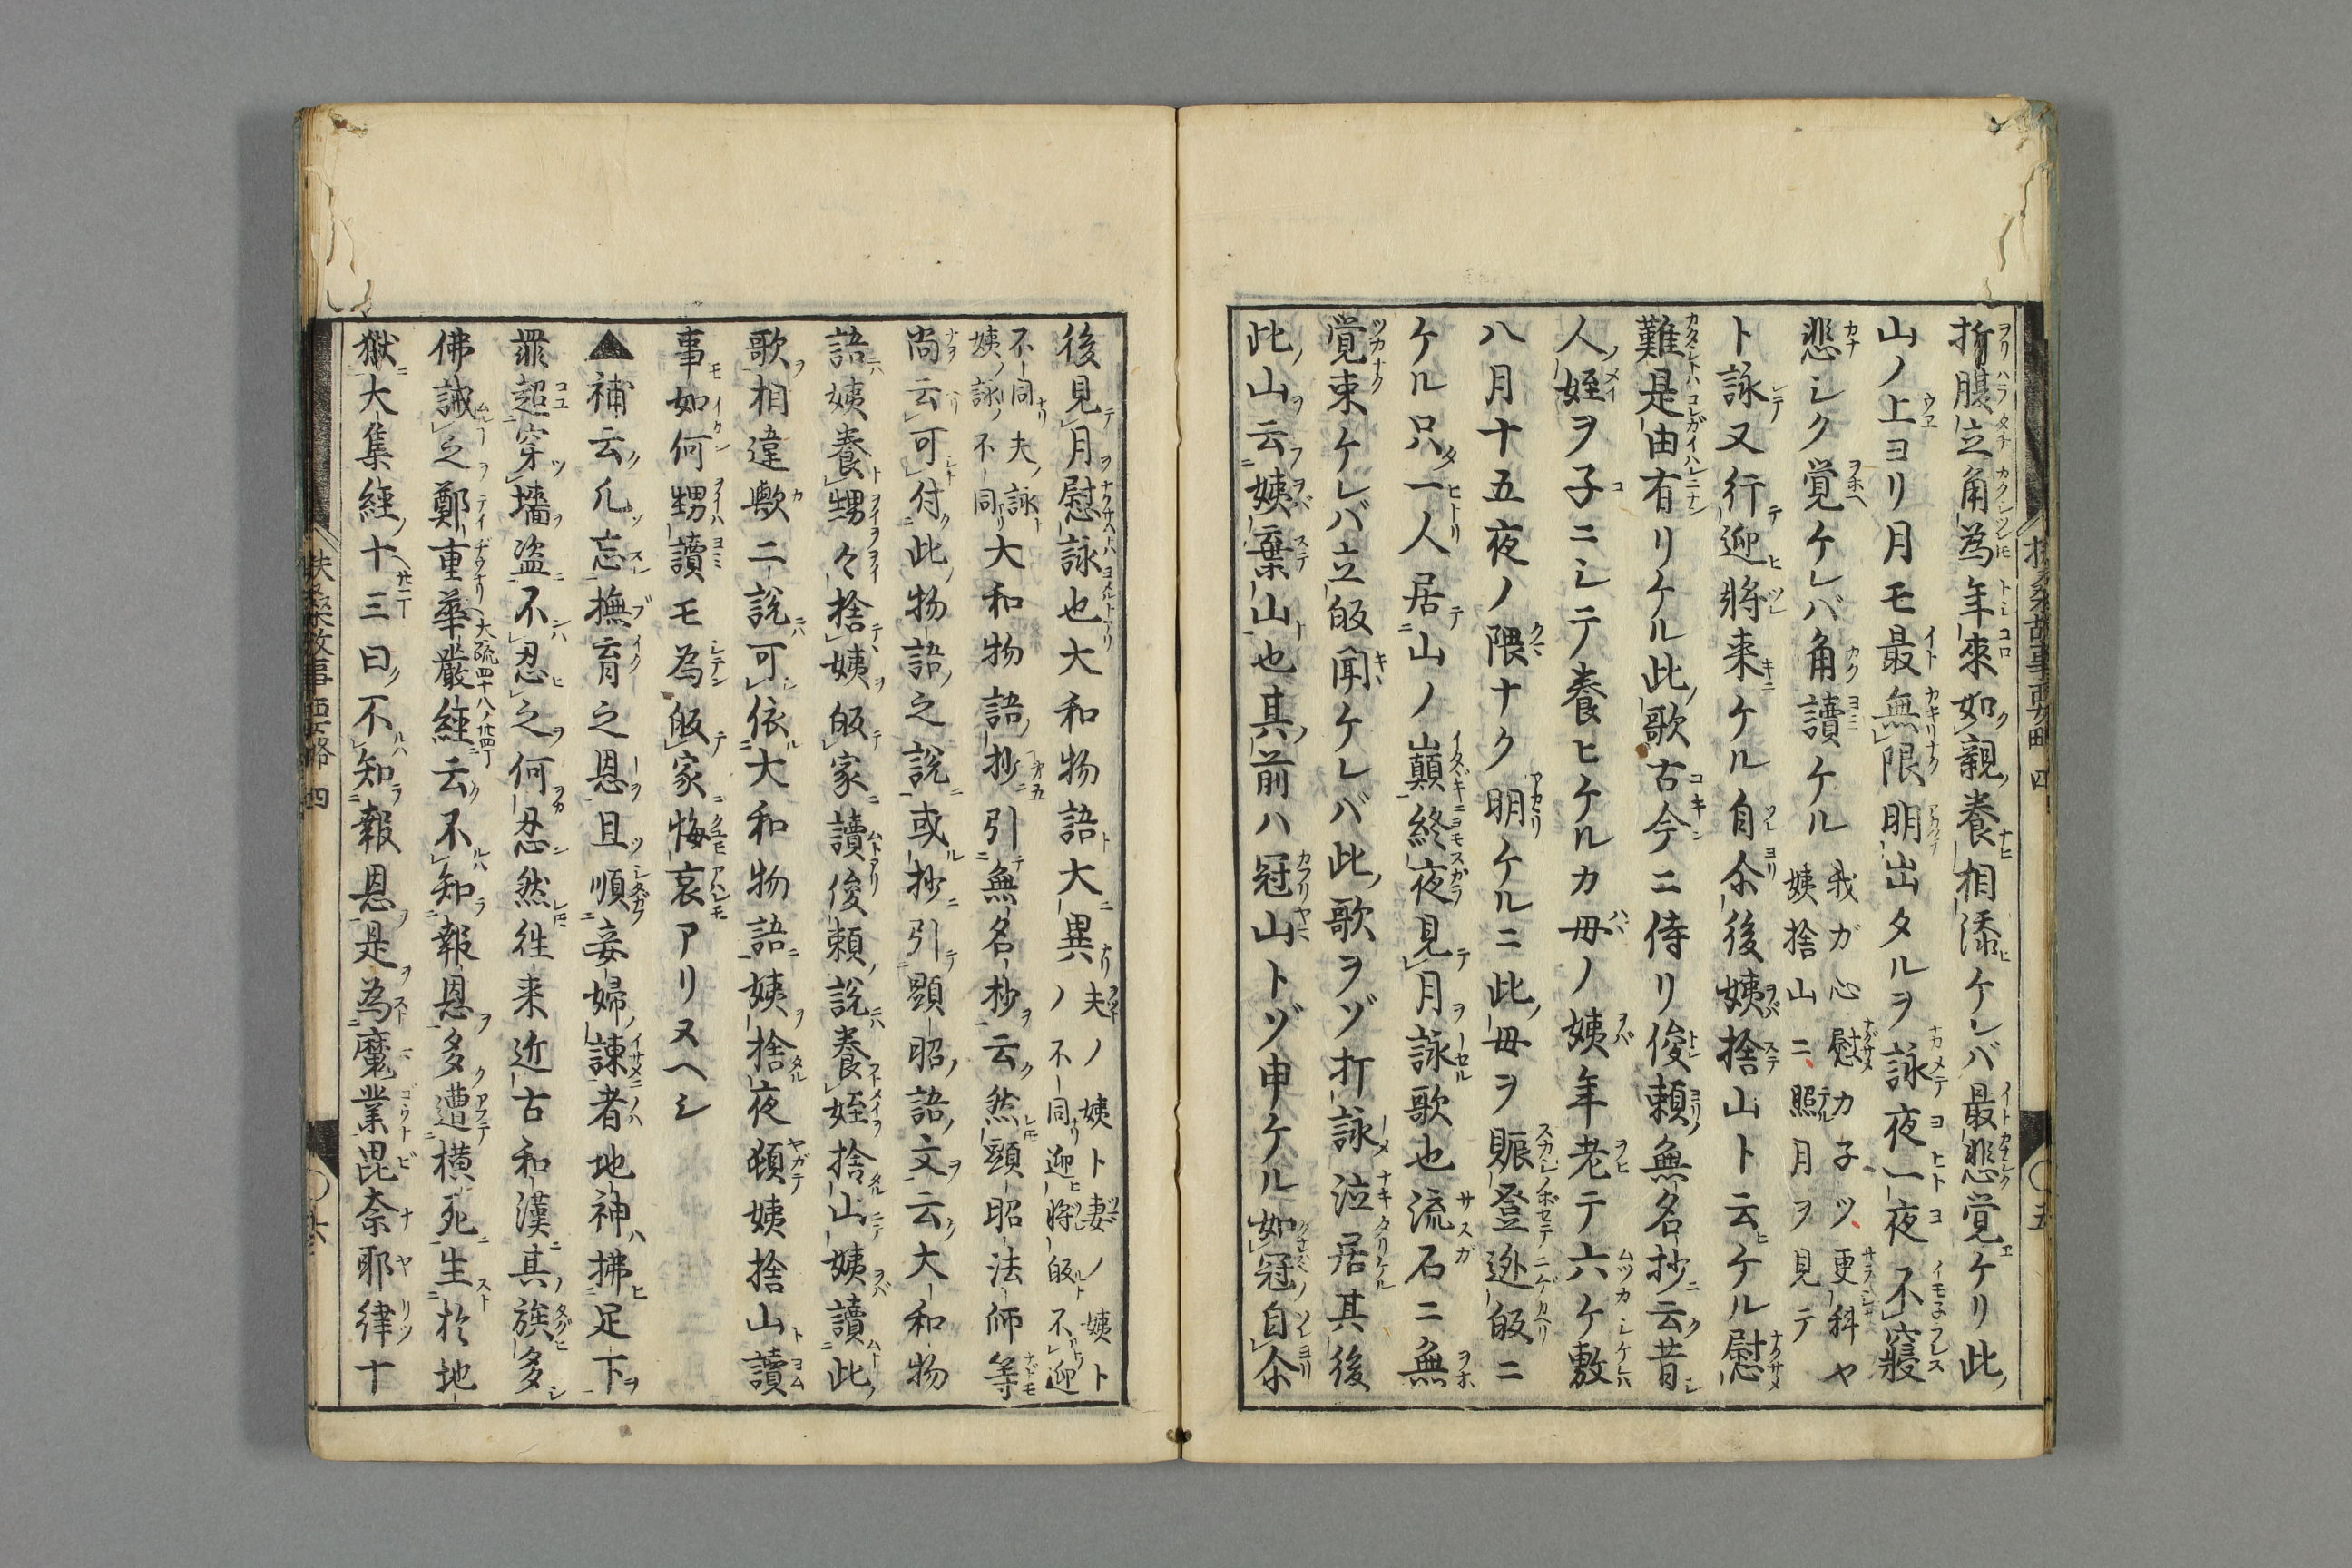 折腹立角為年來如親養相添ケレバ最悲覚ケリ此
山ノ上ヨリ月モ最無限明出タルヲ詠夜一夜不寢
悲シク覚ケレバ角讀ケル
我ガ心慰カ子ツ更科ヤ
姨捨山ニ照月ヲ見テ
ト詠又行迎將来ケル自尓後姨捨山ト云ケル慰
難是由有リケル此歌古今ニ侍リ俊頼無名抄云昔
人姪ヲ子ニシテ養ヒケルカ母ノ姨年老テ六ケ敷
八月十五夜ノ隈ナク明ケルニ此母ヲ賑登逊皈ニ
ケル只一人居山ノ巓終夜見月詠歌也流石ニ無
覚束ケレバ立皈聞ケレバ此歌ヲゾ打詠泣居其後
此山云姨棄山也其前ハ冠山トゾ申ケル如冠自尓
後見月慰詠也大和物語大異ノ夫ノ姨ト妻ノ姨ト
不同迎將皈不迎
不同夫詠
姨詠不同
大和物語抄引無名抄云然頭昭法師等
尚云可付此物語之説或抄引顕昭語文云大和物
語姨養甥々捨姨皈家讀俊頼説養姪捨山姨讀此
歌相違歟二説可依大和物語姨捨夜頓姨捨山讀
事如何甥讀モ為皈家悔哀アリヌヘシ
▲補云凢忘撫育之恩且順妾婦諫者地神拂足下
罪超穿墻盗不忍之何忍然徃来近古和漢其族多
佛誡之鄭重華嚴経云不知報恩多遭横死生於地
大疏四十八ノ廿四丁
獄大集経十三曰不知報恩是為魔業毘奈耶律十
廿二丁
扶桑故事要略 四
六
扶桑故事要略 四
五